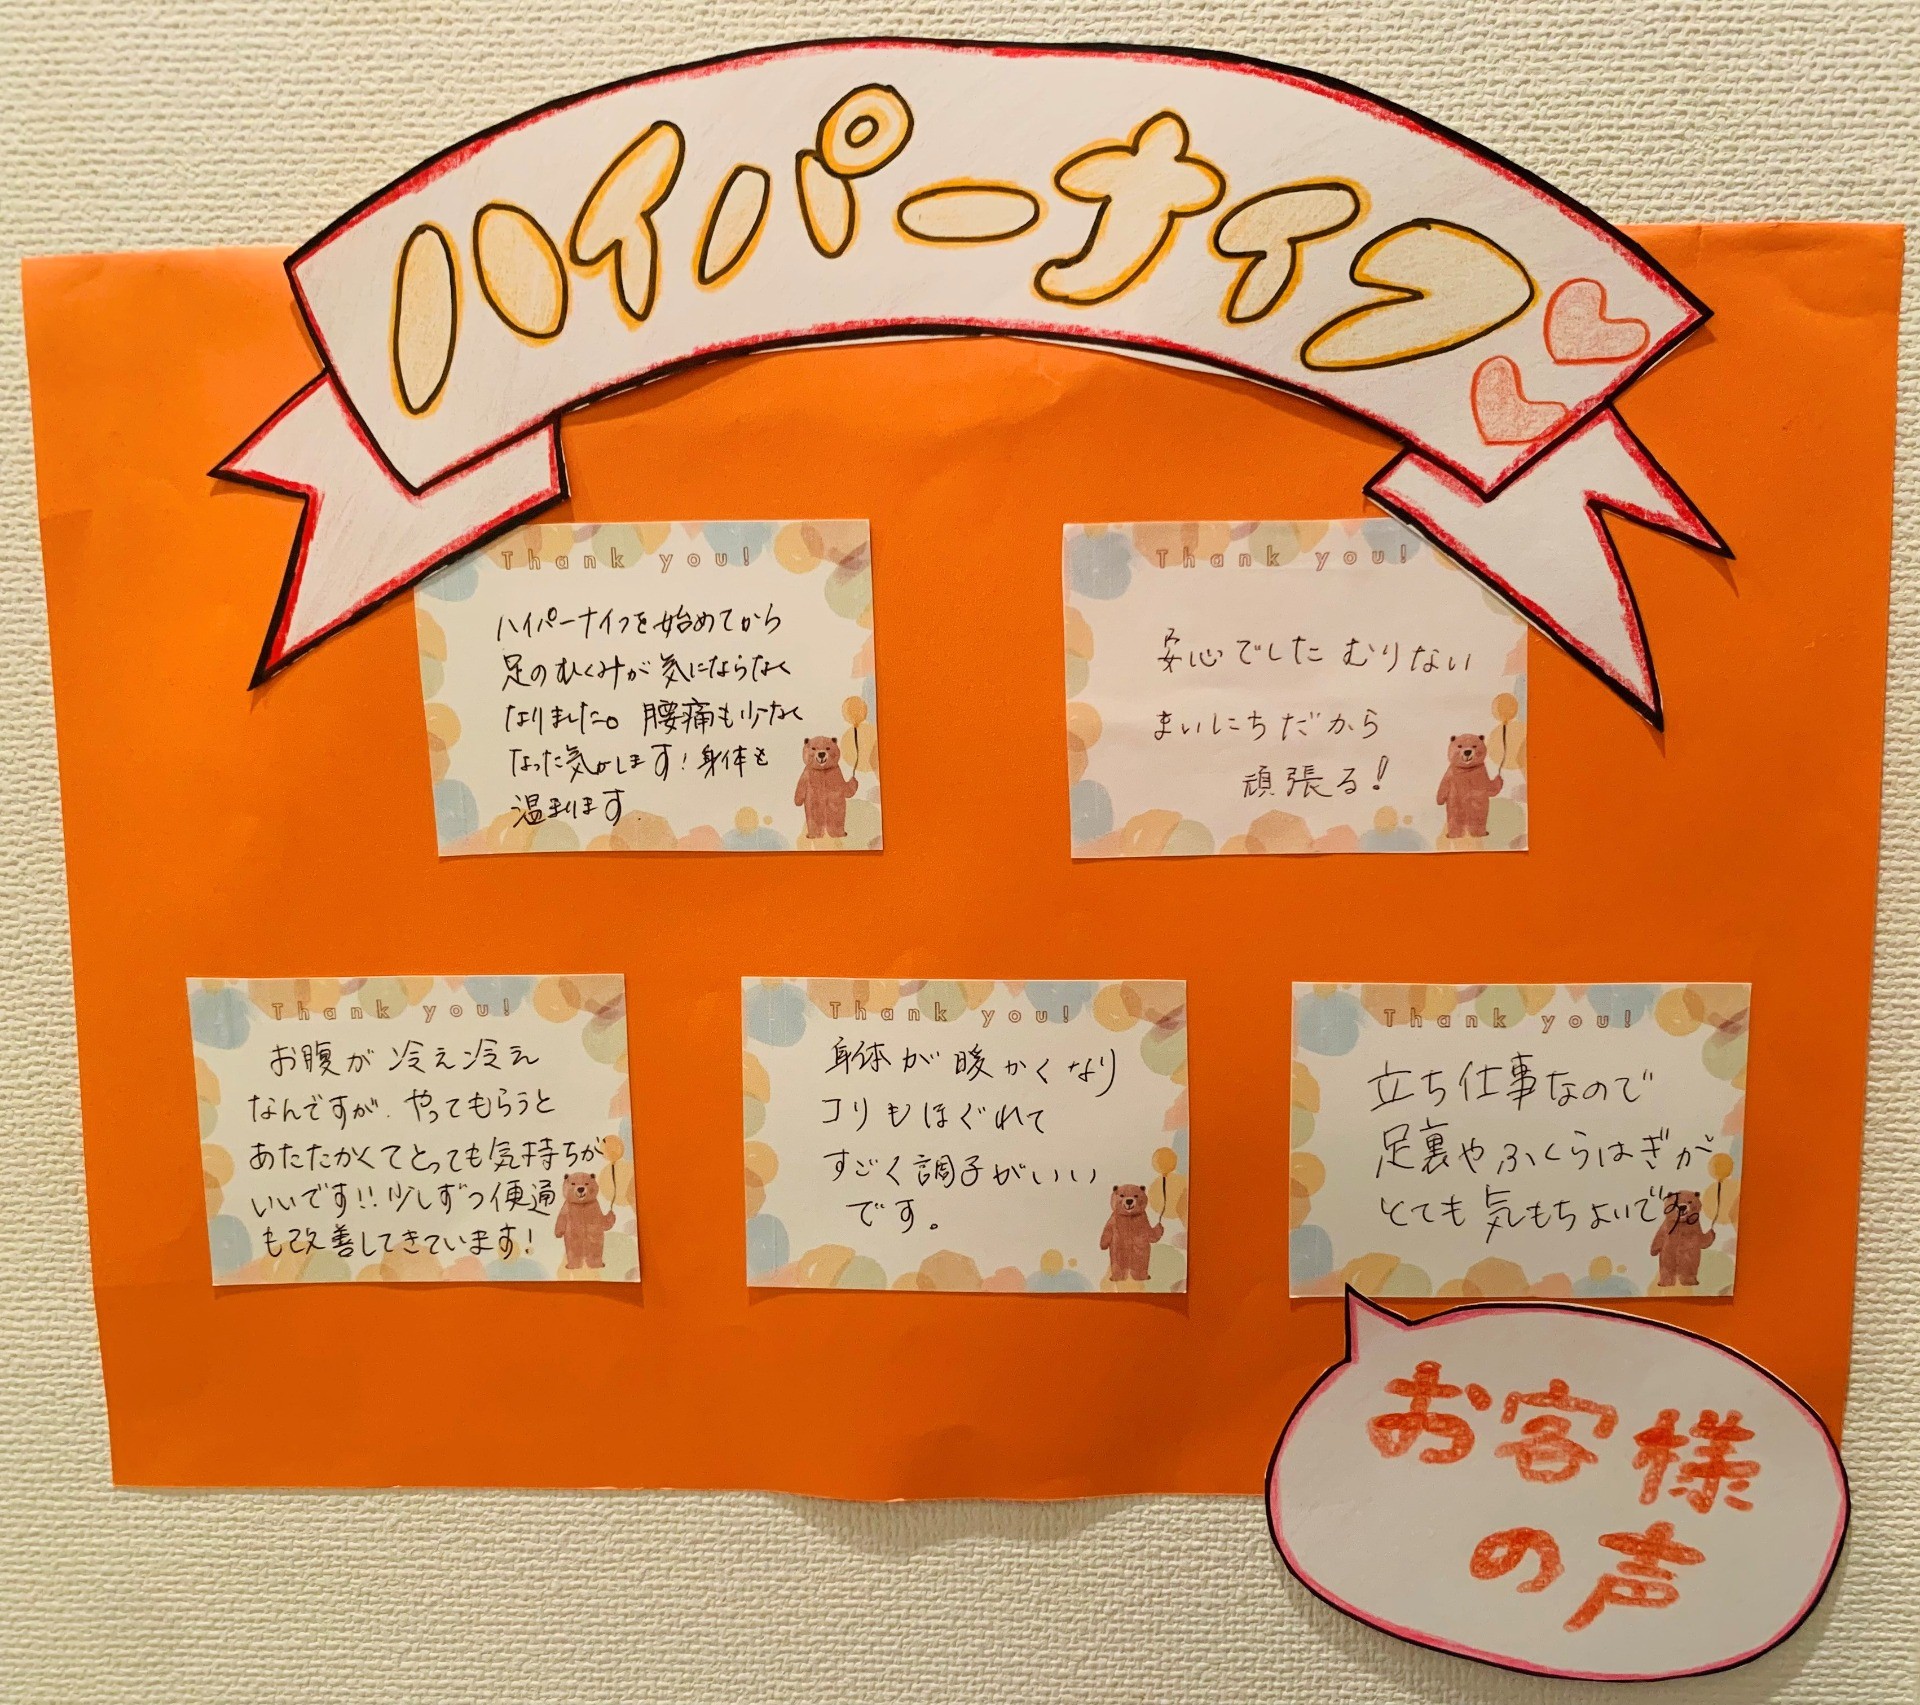 ハイパーナイフ
Thank you!
ハイパーナイフを始めてから
足のむくみが気にならなく
なりました。腰痛も少なく
なった気がします!身体も
温まります.
Thank you!
安心でした むりない
まいにちだから
頑張る!
Thank you!
お腹が冷え冷え
なんですが、やってもらうと
あたたかくてとっても気持ちが
いいです!!少しずつ便通
も改善してきています!
Thank you!
身体が暖かくなり
コリもほぐれて
すごく調子がいい
です。
Thank you!
立ち仕事なので
足裏やふくらはぎが
とても気もちよいです。
お客様
の声